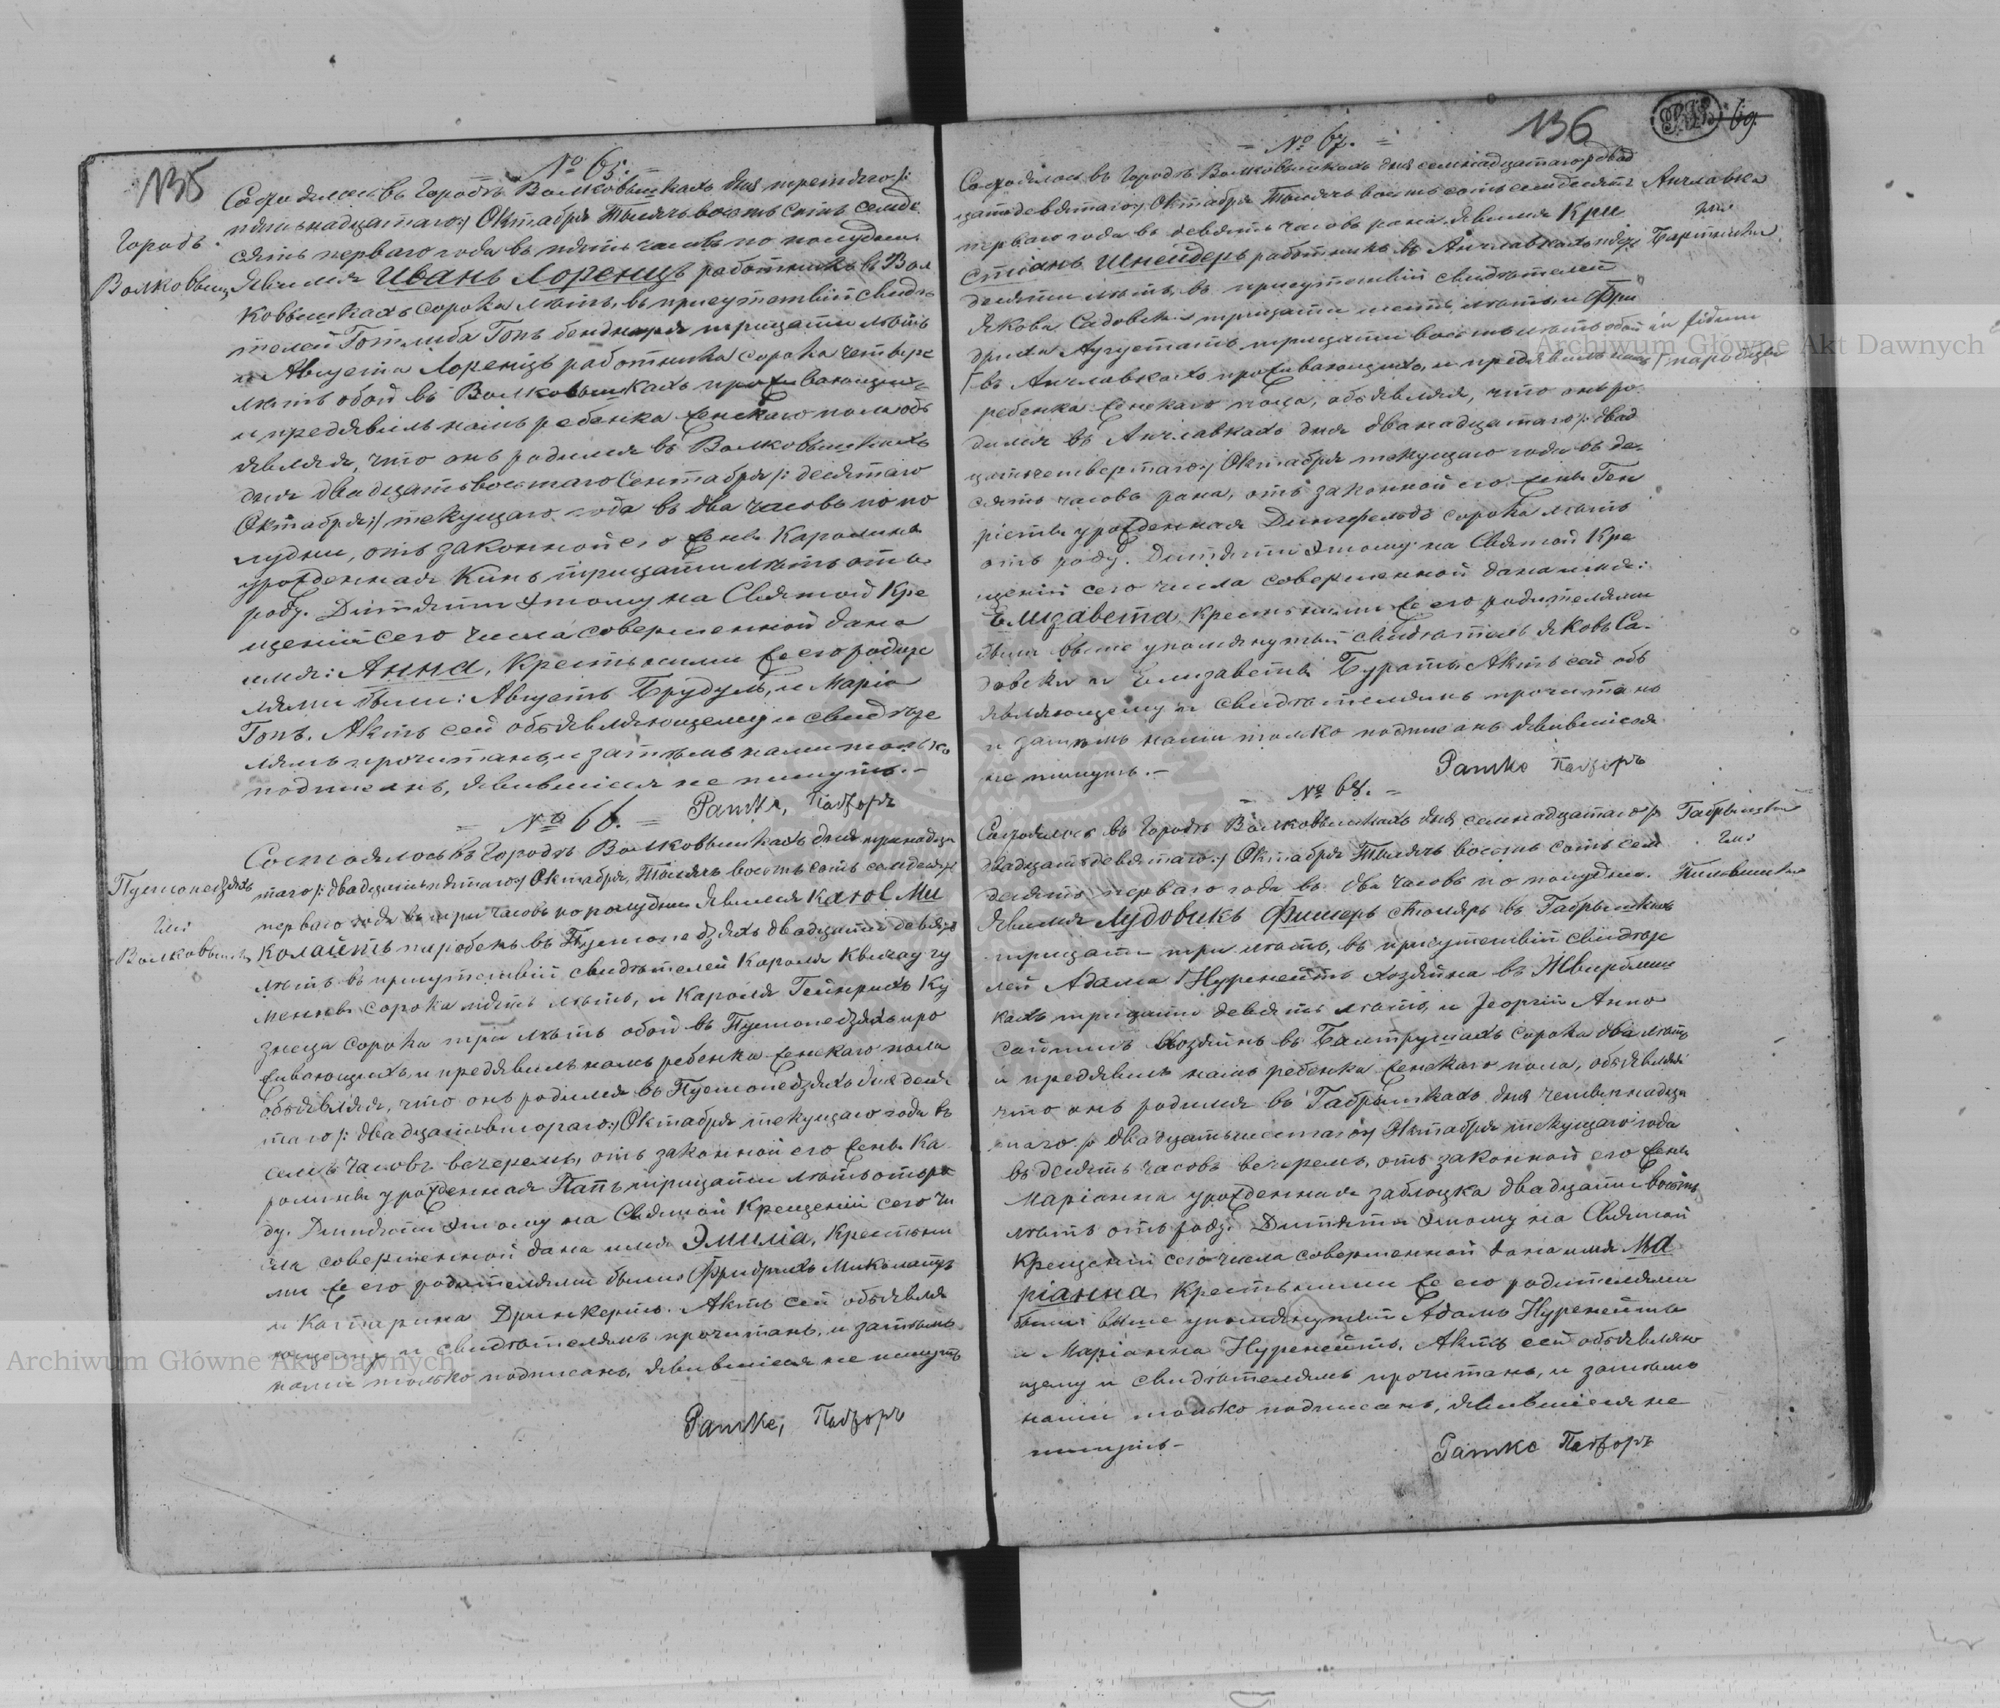 135
№ 65.
Состоялось въ Городѣ Волковышкахъ дня третьяго /:
пятьнадцатаго:/ Октября Тысяча восемь сотъ семьде
сятъ перваго года въ пять часовъ по полудни
Городъ
Волковыш
Явился Иванъ Лоренцъ работникъ въ Вол
ковышкахъ сорока лѣтъ, въ присутствіи свидѣ
телей Готлиба Гопъ беднаря тридцати лѣтъ
и Августа Лоренцъ работника сорока четыре
лѣтъ обой въ Волковышкахъ проживающихъ
и предявилъ намъ ребенка женскаго пола объ
являя, что онъ родился въ Волковышкахъ
дня двадцать восьмаго Сентября /: десятаго
Октября:/ текущаго года въ два часовъ по по
лудни, отъ законной его жены Каролины
урожденная Кинъ тридцати лѣтъ отъ
роду. Дитяти этому на Святой Кре
щеніи сего числа совершенной дано
имя: Анна, Крестьными же его родите
лями были: Августъ Брудулъ, и Марія
Гопъ. Актъ сей объявляющему и свидѣте
лямъ прочитанъ, и затѣмъ нами только
подписанъ, явившіеся не пишутъ. –
Ратке, Пасторъ
= № 66. =
Состоялось въ Городѣ Волковышкахъ дня тринадца
таго /: двадцать пятаго:/ Октября, Тысяча восемь сотъ семьдесятъ
Пустопедзяхъ
Гми
Волковышк
перваго года въ три часовъ по полудни Явился Karol Ми
колайтъ паробекъ въ Пустопедзяхъ двадцати девять
лѣтъ въ присутствіи свидѣтелей Кароля Квичау гу
менны сорока пять лѣтъ, и Кароля Гейнрихъ Ку
знеца сорока три лѣтъ обой въ Пустопедзяхъ про
живающихъ, и предявилъ намъ ребенка женскаго пола
объявляя, что онъ родился въ Пустопедзяхъ дня деся
таго /: двадцать втораго:/ Октября текущаго года въ
семь часовъ вечеремъ, отъ законной его жены Ка
ролины урожденная Папъ тридцати лѣтъ отъ ро
ду. Дитяти этому на Святой Крещеніи сего чи
сла совершенной дано имя Эмилія, Крестьны
ми же его родителями были: Фридрихъ Миколайтъ
и Катарина Дринкертъ. Актъ сей объявля
ющему и свидѣтелямъ прочитанъ, и затѣмъ
нами только подписанъ, явившіеся не пишутъ
Ратке, Пасторъ
136
69
= № 67. =
Состоялось въ Городѣ Волковышкахъ дня семнадцатаго /: двад
цать девятаго:/ Октября Тысяча восемь сотъ семьдесятъ
перваго года въ девять часовъ рана. Явился Кри
стіанъ Шнейдеръ работникъ въ Анчлавкахъ
Анчлавка
Гми
Бартники
десяти лѣтъ, въ присутствіи свидѣтелей
Якова Садовски тридцати шесть лѣтъ, и Фри
дриха Аугустатъ тридцати восемь лѣтъ обой
въ Анчлавкахъ проживающихъ, и предявилъ намъ
ребенка женскаго пола, объявляя, что онъ ро
дился въ Анчлавкахъ дня двенадцатаго /: двад
цать четвертаго:/ Октября текущаго года въ де
сять часовъ рана, отъ законной его жены Ген
ріеты урожденная Дингфельдъ сорока лѣтъ
отъ роду. Дитяти этому на Святой Кре
щеніи сего числа совершенной дана имя:
Елизавета, Крестьными же его родителями
были выше упомянутый свидѣтель Яковъ Са
довски и Елизавета Буратъ. Актъ сей объ
являющему и свидѣтелямъ прочитанъ
и затѣмъ нами только подписанъ явившіеся
не пишутъ. –
Ратке Пасторъ
= № 68. =
Состоялось въ Городѣ Волковышкахъ дня семнадцатаго /:
двадцать девятаго:/ Октября Тысяча восемь сотъ семь
десятъ перваго года въ два часовъ по полудни.
Габрышки
Гми
Пильвишки
Явился Лудовикъ Фишеръ столяръ въ Габрышкахъ
тридцати три лѣтъ, въ присутствіи свидѣте
лей Адама Нурнейтъ хозяйна въ Жвирблиш
кахъ тридцати девять лѣтъ, и Георгій Анно
сайтисъ хозяйнъ въ Балтрушахъ сорока два лѣтъ
и предявилъ намъ ребенка женскаго пола, объявляя
что онъ родился въ Габрышкахъ дня четырнадца
таго /: двадцать шестаго:/ Октября текущаго года
въ десять часовъ вечеремъ, отъ законной его жены
Маріанны урожденная Заблоцка двадцати восемь
лѣтъ отъ роду. Дитяти этому на Святой
Крещеніи сего числа совершенной дана имя Ма
ріанна, Крестьными же его родителями
были: выше упомянутый Адамъ Нурнейтъ
и Маріанна Нурнейтъ. Актъ сей объявляю
щему и свидѣтелямъ прочитанъ, и затѣмъ
нами только подписанъ, явившіеся не
пишутъ –
Ратке Пасторъ
Archiwum Główne Akt Dawnych
Archiwum Główne Akt Dawnych